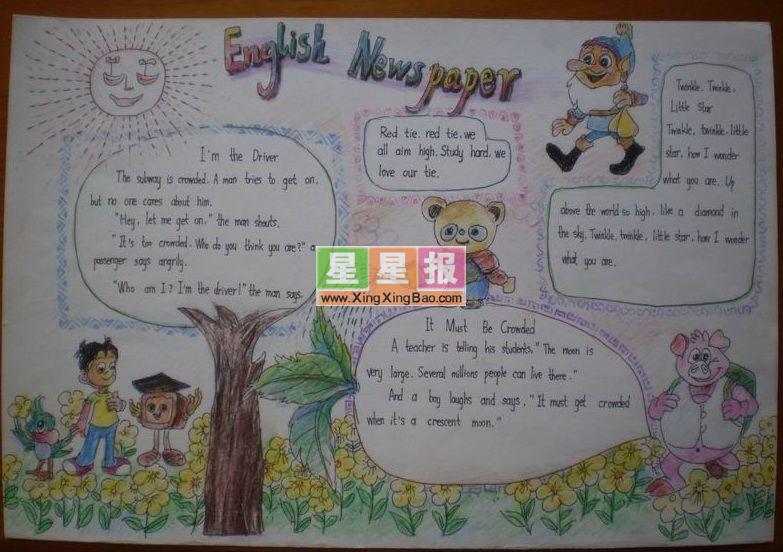 English Newspaper
I'm the Driver
The subway is crowded. A man tries to get on,
but no one cares about him.
"Hey, let me get on," the man shouts.
"It's too crowded. Who do you think you are?" a
passenger says angrily.
"Who am I? I'm the driver!" the man says.
Red tie, red tie, we
all aim high. Study hard, we
love our tie.
Twinkle, Twinkle,
Little Star
Twinkle, twinkle, little
star, how I wonder
what you are. Up
above the world so high, like a diamond in
the sky. Twinkle, twinkle, little star, how I wonder
what you are.
星星报
www.XingXingBao.com
It Must Be Crowded
A teacher is telling his students, "The moon is
very large. Several millions people can live there."
And a boy laughs and says, "It must get crowded
when it's a crescent moon."